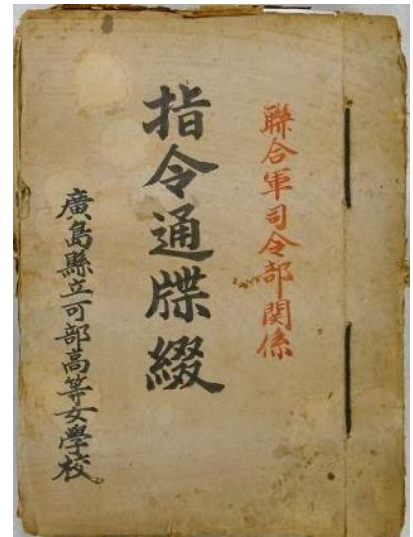 聯合軍司令部関係
指令通牒綴
廣島縣立可部高等女學校